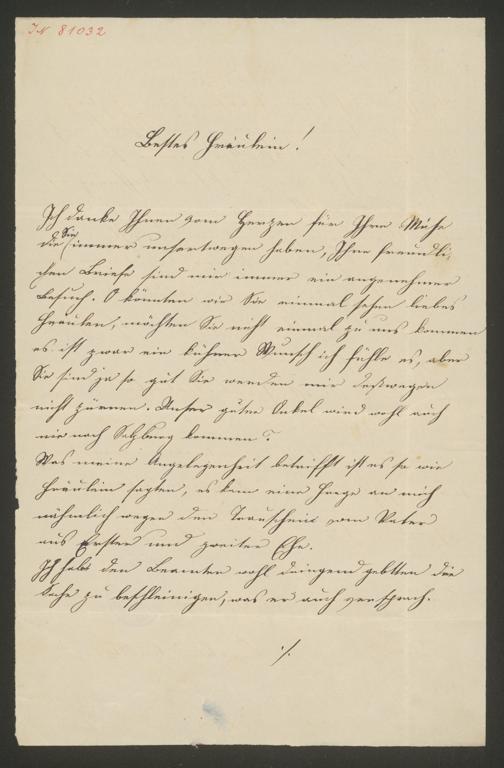 IN 81032
Bestes Fräulein!
Ich danke Ihnen vom Herzen für Ihre Mühe
die Sie immer unsertwegen haben, Ihre freundli-
chen Briefe sind mir immer ein angenehmer
Besuch. O könnten wir Sie einmal sehen liebes
Fräulein, möchten Sie nicht einmal zu uns kommen
es ist zwar ein kühner Wunsch ich fühle es, aber
Sie sind ja so gut Sie werden mir deßwegen
nicht zürnen. Unser guter Onkel wird wohl auch
nie nach Salzburg kommen?
Was meine Angelegenheit betrifft ist es so wie
Fräulein sagten, es kam eine Frage an mich
nähmlich wegen den Trauschein vom Vater
aus Erster und zweiter Ehe.
Ich habe den Beamten wohl dringend gebetten die
Sache zu beschleinigen, was er auch versprach.
./.